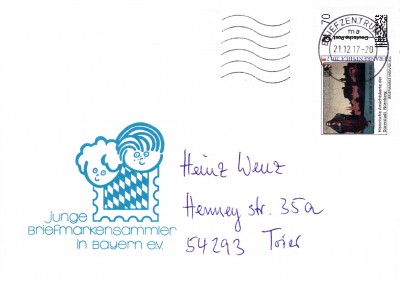 70
Deutsche Post
BRIEFZENTRUM
ma
21.12.17-20
Heinz Wenz
Henney str. 35a
54293 Trier
junge
Briefmarkensammler
in Bayern e.V.